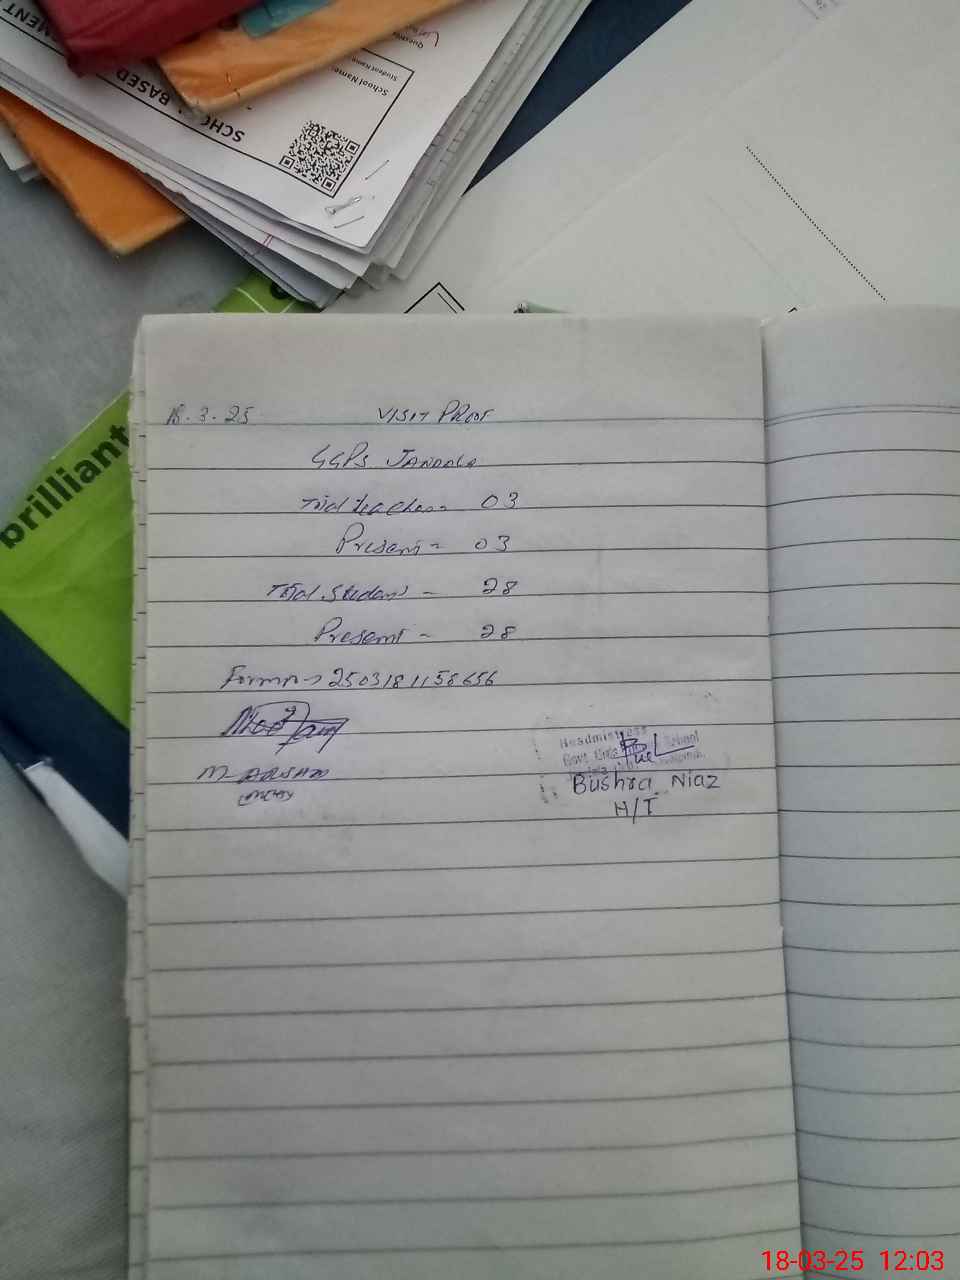 SCHOOL BASED
MENT
School Name
Student Name
brilliant
18.3.25 VISIT PROOF
GGPS JANDALA
Total teachers = 03
Present = 03
Total Students - 28
Present - 28
250318 1158656
M. ARSHAD
Headmistress
Govt Girls School
Bushra Niaz
H/T
18-03-25 12:03